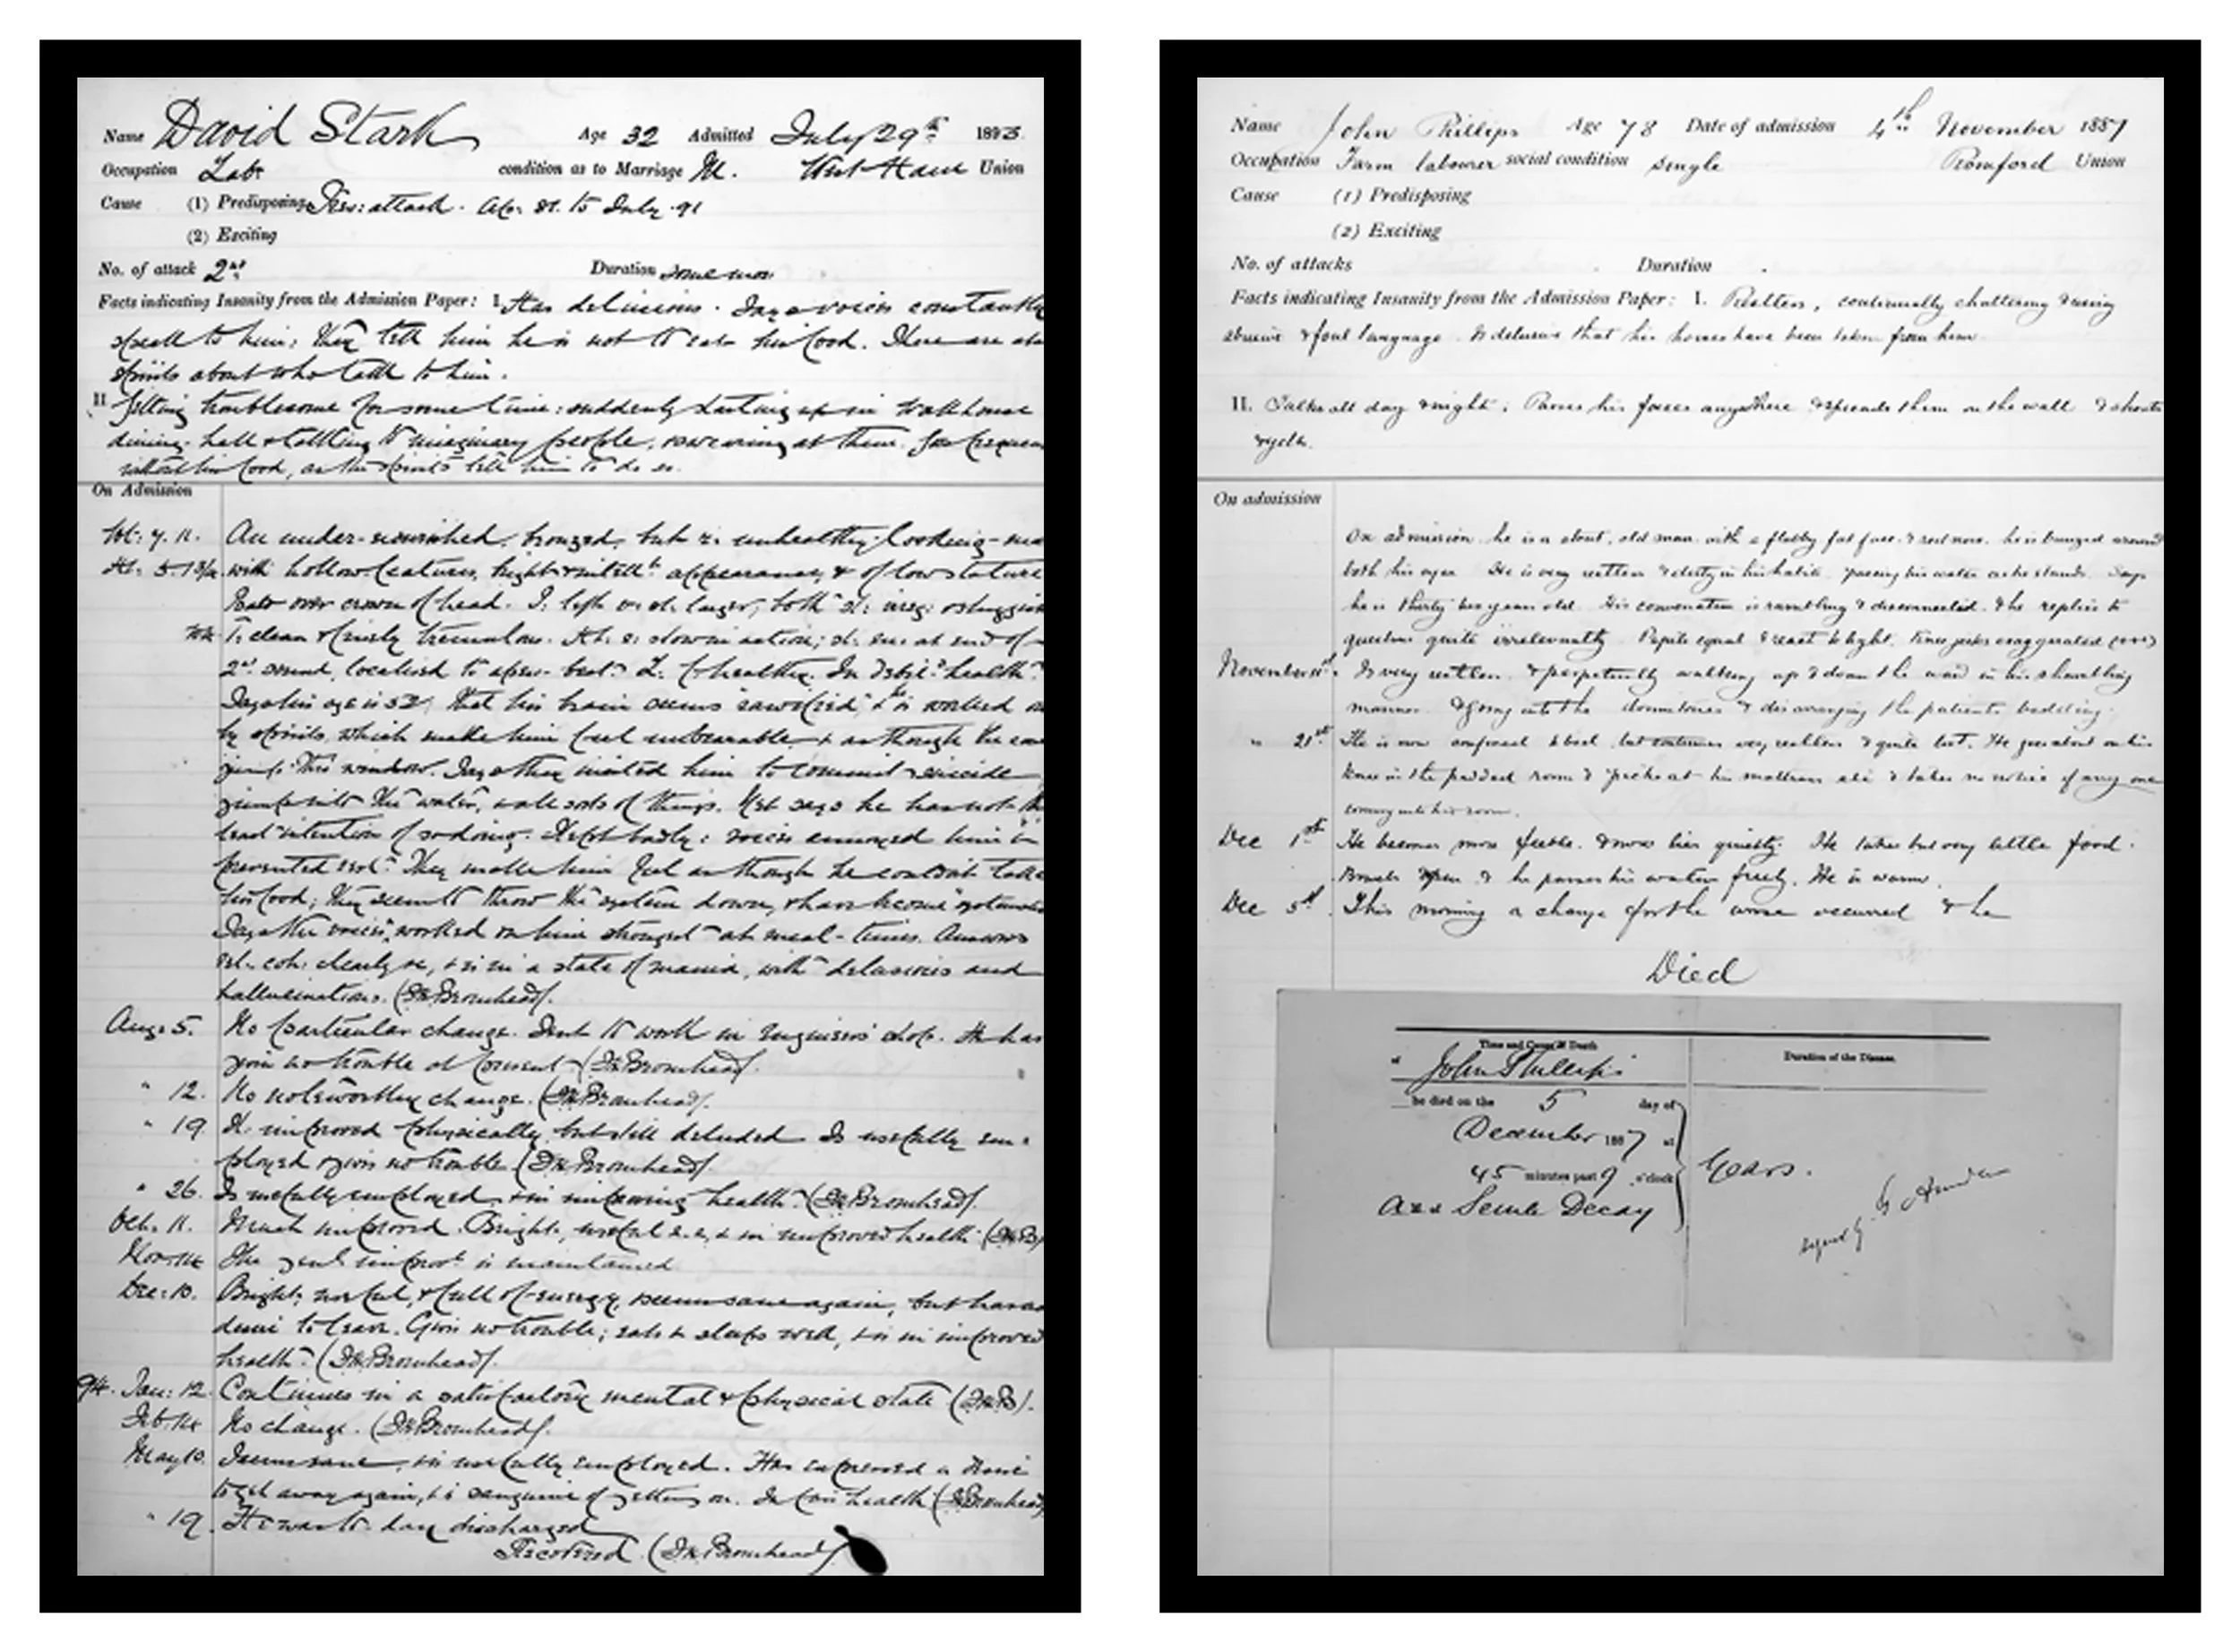 Name David Stark Age 32 Admitted July 29th 1893
Occupation Lab: condition as to Marriage M. West Ham Union
Cause (1) Predisposing Prev: attack. to July 91
(2) Exciting
No. of attack 2nd Duration some mos
Facts indicating Insanity from the Admission Paper: I. Has delusions. Says voices constantly
speak to him; They tell him he is not to eat his food. There are also
spirits about who talk to him.
II Getting troublesome for some time: suddenly starting up in workhouse
dining-hall & talking to imaginary people, swearing at them. Goes
without his food, as the spirits tell him to do so.
On Admission
Wt: 7. 11. An under-nourished, bronzed, but unhealthy-looking
Ht: 5. 1 3/4 with hollow features, bright & appearance, & of low stature
over crown of head. larger; both
T. clean & finely tremulous. slow in action; at end of
2nd sound, localised to apex-beat. health
Says his age is 32, that his brain seems & is worked on
by spirits, which make him feel unbearable & as though he
jump thro' window. Says they wanted him to commit suicide
jump into the water, & all sorts of things. Yet says he has not the
least intention of so doing. Slept badly: voices annoyed him &
prevented rest. They make him feel as though he couldn't take
his food; they seem to throw the system down, & have become
Says the voices worked on him strongest at meal-times. Answers
clearly &c, & is in a state of mania, with delusions and
hallucinations. (Dr. Bromhead).
Aug: 5. No particular change. Sent to work in Engineers' shop. He has
given no trouble at present. (Dr. Bromhead).
" 12. No noteworthy change. (Dr. Bromhead).
" 19. Is improved physically, but still deluded. Is usefully em-
ployed & gives no trouble. (Dr. Bromhead).
" 26. Is usefully employed & in improving health. (Dr. Bromhead).
Oct. 11. Much improved. Bright, useful &c, & in improved health. (Dr. B)
Nov: 14 The genl. improvt. is maintained
Dec: 10. Bright, useful, & full of energy, seems sane again, but has no
desire to leave. Gives no trouble; eats & sleeps well, & is in improved
health. (Dr. Bromhead).
94. Jan: 12. Continues in a satisfactory mental & physical state (Dr. B).
Feb. 14 No change. (Dr. Bromhead).
May 10. Seems sane, & is usefully employed. Has expressed a desire
to get away again, & is sanguine of getting on. In fair health (Dr. Bromhead)
" 19. He was to-day discharged
Recovered. (Dr. Bromhead)
Name John Phillips Age 78 Date of admission 4th November 1887
Occupation Farm labourer social condition single Romford Union
Cause (1) Predisposing
(2) Exciting
No. of attacks Duration
Facts indicating Insanity from the Admission Paper: I. Restless, continually chattering & using
abusive & foul language. Is delusive that his horses have been taken from him.
II. Talks all day & night; Passes his faeces anywhere & spreads them on the wall & shouts
& yells.
On admission
On admission he is a stout, old man with a flabby fat face & red nose. he is bunged around
both his eyes. He is very restless & dirty in his habits, passing his water as he stands. Says
he is thirty two years old. His conversation is rambling & disconnected. & he replies to
questions quite irrelevantly. Pupils equal & react to light. Knee jerks exaggerated
November 11th. Is very restless & perpetually walking up & down the ward in his shambling
manner. & going into the dormitories & disarranging the patients bedding.
" 21st He is now confined to bed, but continues very restless & quite lost. He goes about on his
knees in the padded room & picks at his mattress &c & takes no notice of any one
coming into his room.
Dec 1st He becomes more feeble. & now lies quietly. He takes but very little food.
Bowels open & he passes his water freely. He is warm.
Dec 5th. This morning a change for the worse occurred & he
Died
Time and Cause of Death Duration of the Disease.
of John Phillips
he died on the 5 day of
December 1887 at
45 minutes past 9 o'clock Years.
Senile Decay
signed